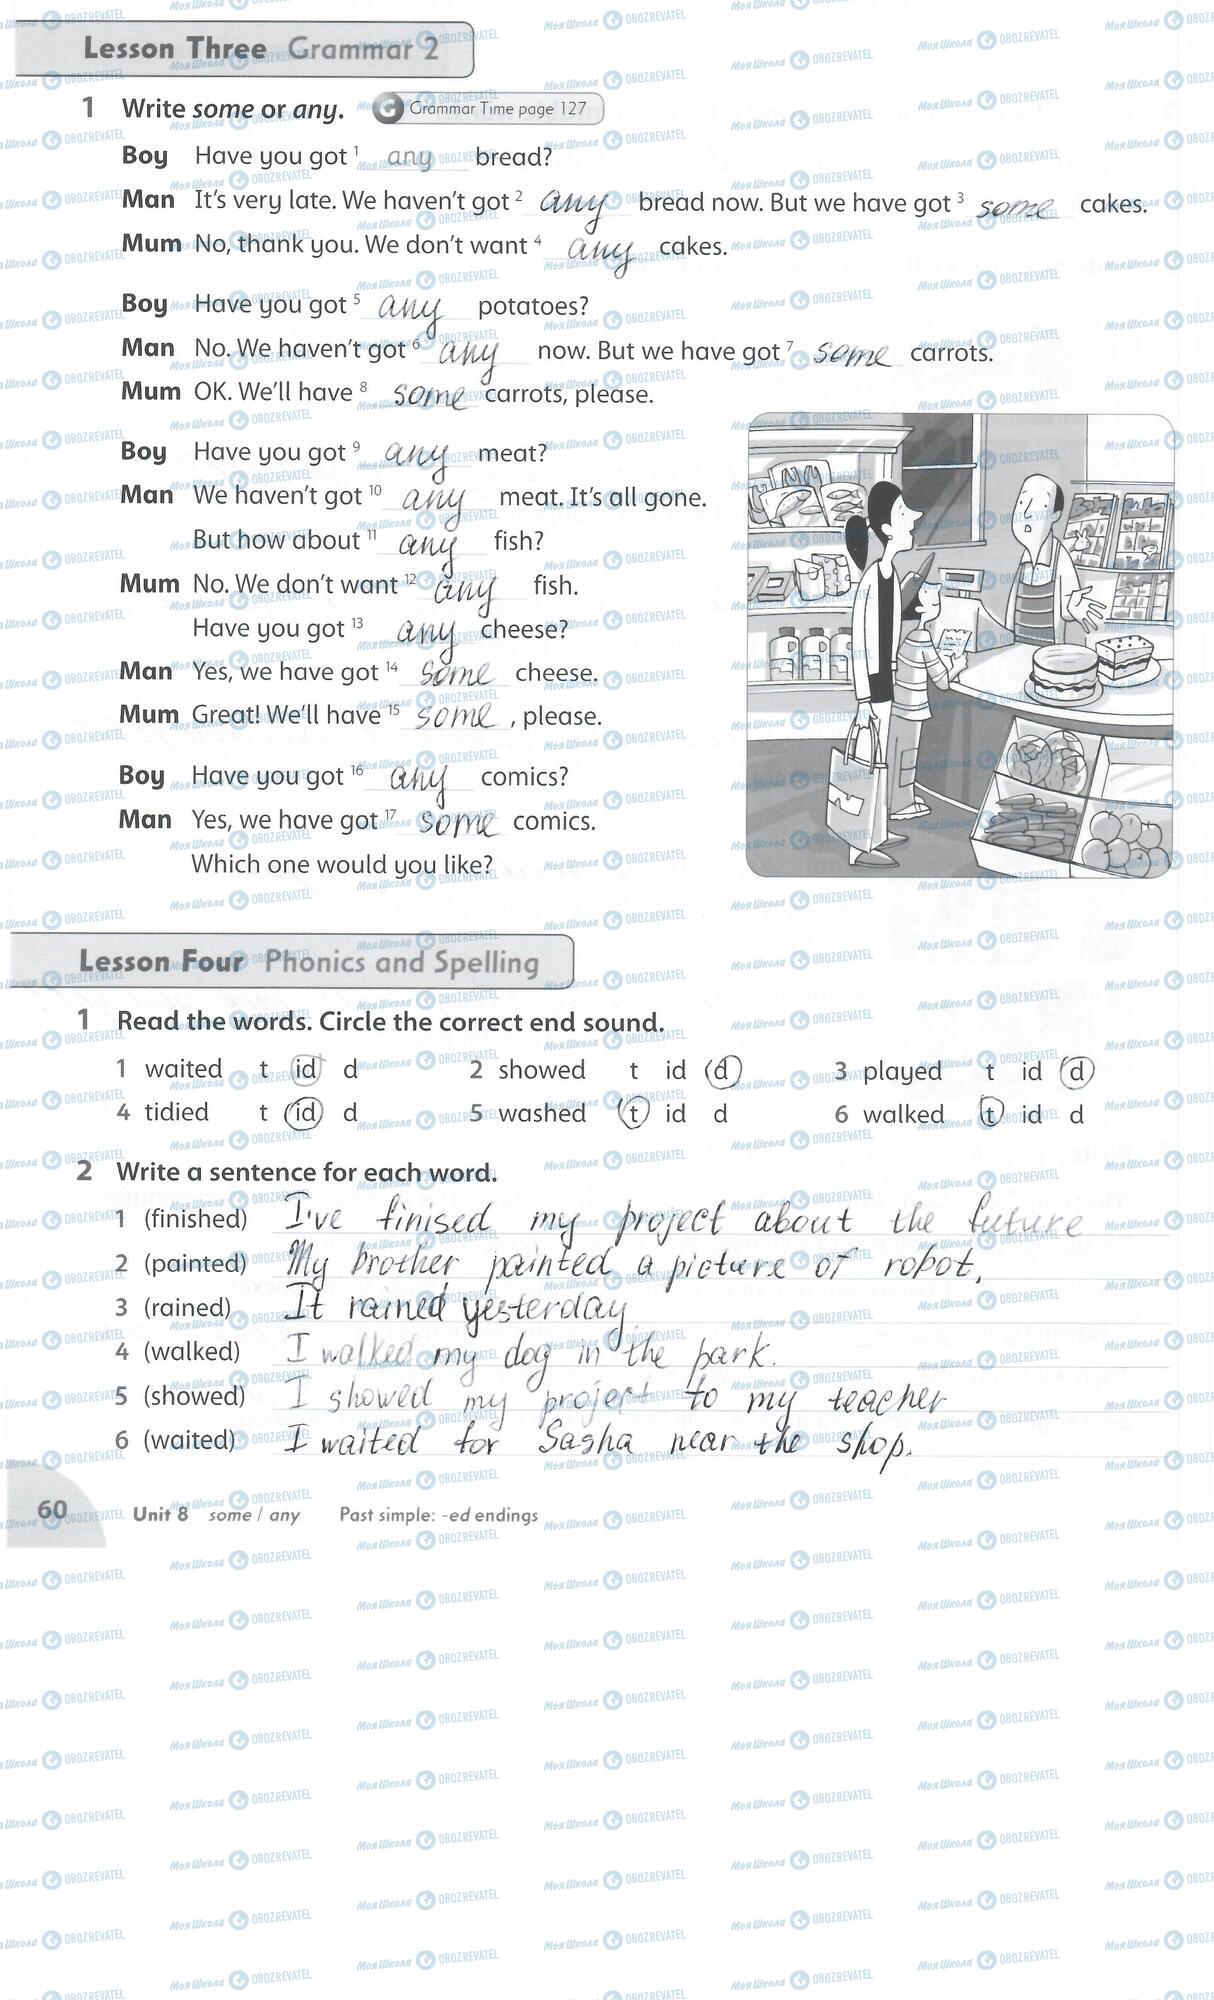 Lesson Three Grammar 2
1 Write some or any. G Grammar Time page 127
Boy Have you got 1 any bread?
Man It's very late. We haven't got 2 any bread now. But we have got 3 some cakes.
Mum No, thank you. We don't want 4 any cakes.
Boy Have you got 5 any potatoes?
Man No. We haven't got 6 any now. But we have got 7 some carrots.
Mum OK. We'll have 8 some carrots, please.
Boy Have you got 9 any meat?
Man We haven't got 10 any meat. It's all gone.
But how about 11 any fish?
Mum No. We don't want 12 any fish.
Have you got 13 any cheese?
Man Yes, we have got 14 some cheese.
Mum Great! We'll have 15 some, please.
Boy Have you got 16 any comics?
Man Yes, we have got 17 some comics.
Which one would you like?
Lesson Four Phonics and Spelling
1 Read the words. Circle the correct end sound.
1 waited t id d 2 showed t id d 3 played t id d
4 tidied t id d 5 washed t id d 6 walked t id d
2 Write a sentence for each word.
1 (finished) I've finised my project about the future
2 (painted) My brother painted a picture of robot.
3 (rained) It rained yesterday.
4 (walked) I walked my dog in the park.
5 (showed) I showed my project to my teacher
6 (waited) I waited for Sasha near the shop.
60 Unit 8 some / any Past simple: -ed endings
МояШкола OBOZREVATEL